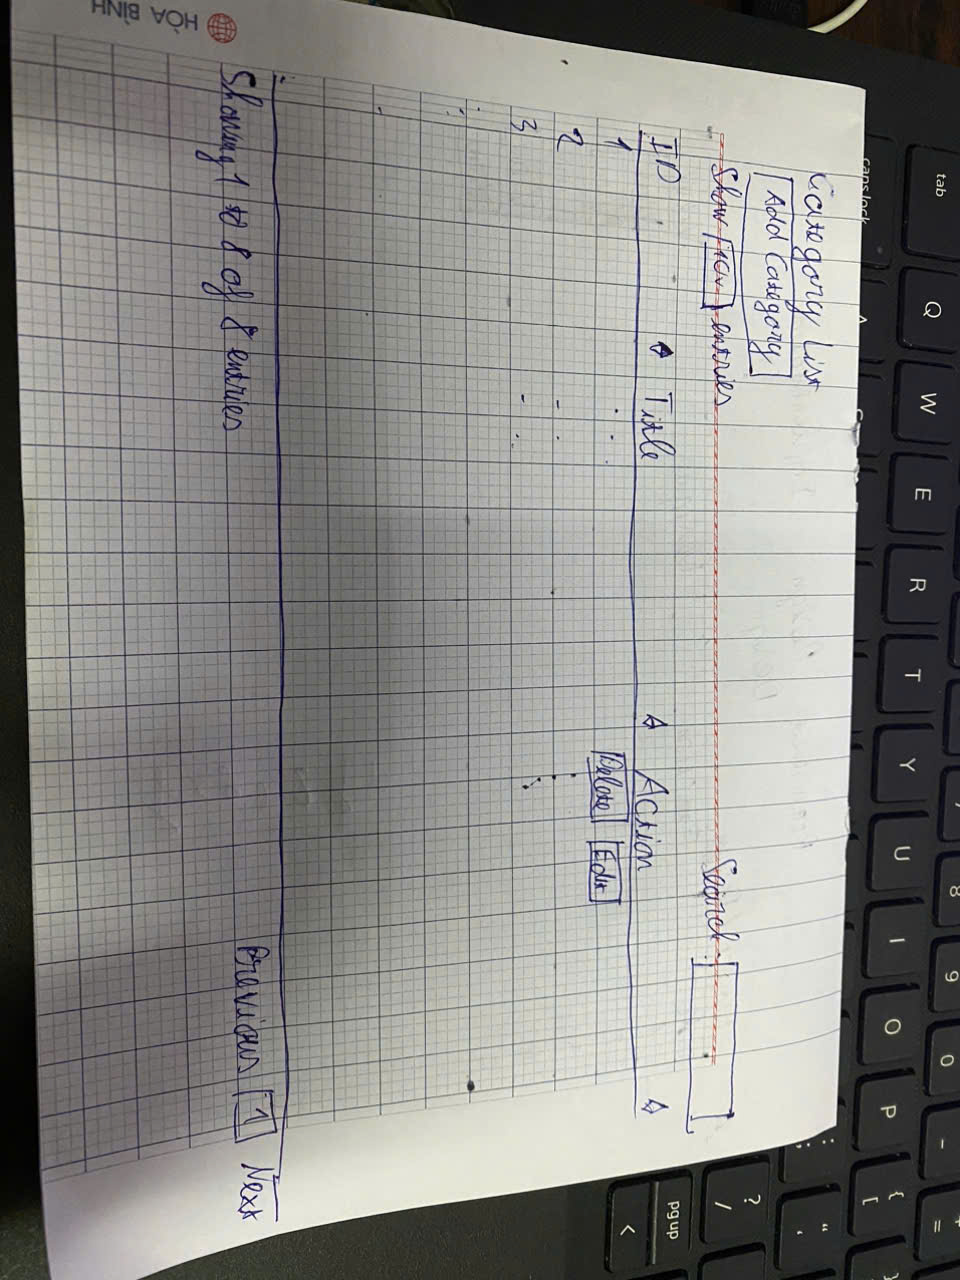 Category List
Add Category
Show 10 entries Search:
ID Title Action
1 Delete Edit
2
3
Showing 1 to 8 of 8 entries Previous 1 Next
HÒA BÌNH
tab Q W E R T Y U I O P { [
caps lock A
8 9 0 - =
: ;
" '
? /
pg up
<